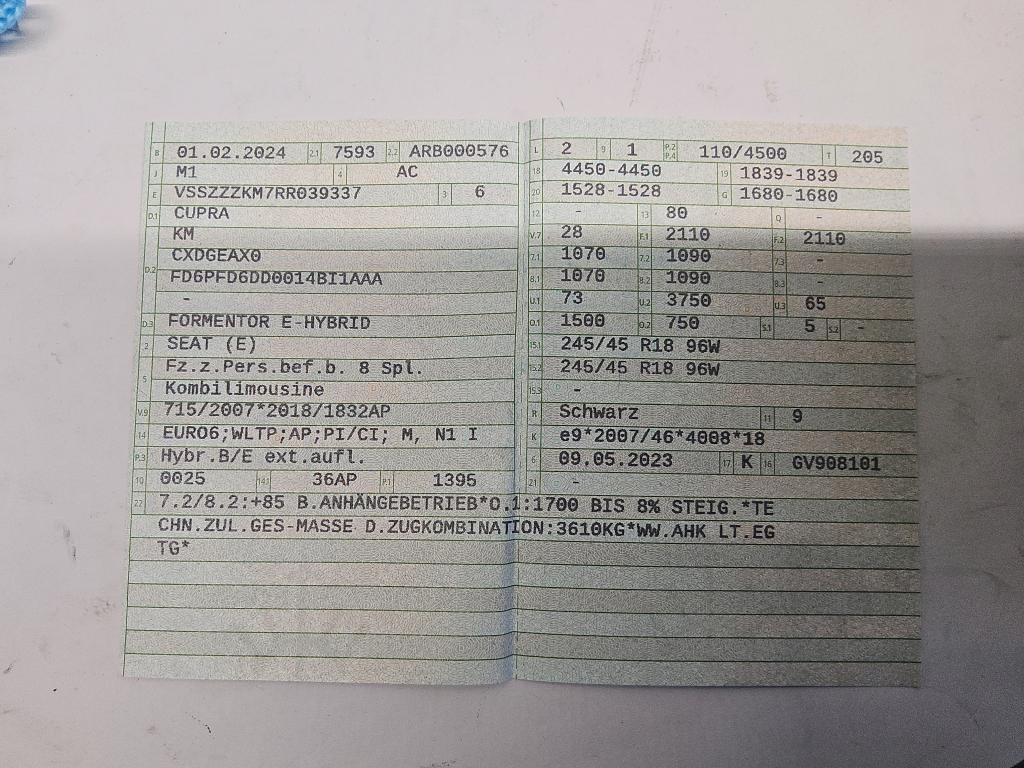 B 01.02.2024 2.1 7593 2.2 ARB000576
J M1 4 AC
E VSSZZZKM7RR039337 3 6
D.1 CUPRA
KM
D.2 CXDGEAX0
FD6PFD6DD0014BI1AAA
-
D.3 FORMENTOR E-HYBRID
2 SEAT (E)
5 Fz.z.Pers.bef.b. 8 Spl.
Kombilimousine
V.9 715/2007*2018/1832AP
14 EURO6;WLTP;AP;PI/CI; M, N1 I
P.3 Hybr.B/E ext.aufl.
10 0025 14.1 36AP P.1 1395
L 2 9 1 P.2 P.4 110/4500 T 205
18 4450-4450 19 1839-1839
20 1528-1528 G 1680-1680
12 - 13 80 Q -
V.7 28 F.1 2110 F.2 2110
7.1 1070 7.2 1090 7.3 -
8.1 1070 8.2 1090 8.3 -
U.1 73 U.2 3750 U.3 65
O.1 1500 O.2 750 S.1 5 S.2 -
15.1 245/45 R18 96W
15.2 245/45 R18 96W
15.3 -
R Schwarz 11 9
K e9*2007/46*4008*18
6 09.05.2023 17 K 16 GV908101
21 -
22 7.2/8.2:+85 B.ANHÄNGEBETRIEB*O.1:1700 BIS 8% STEIG.*TE
CHN.ZUL.GES-MASSE D.ZUGKOMBINATION:3610KG*WW.AHK LT.EG
TG*